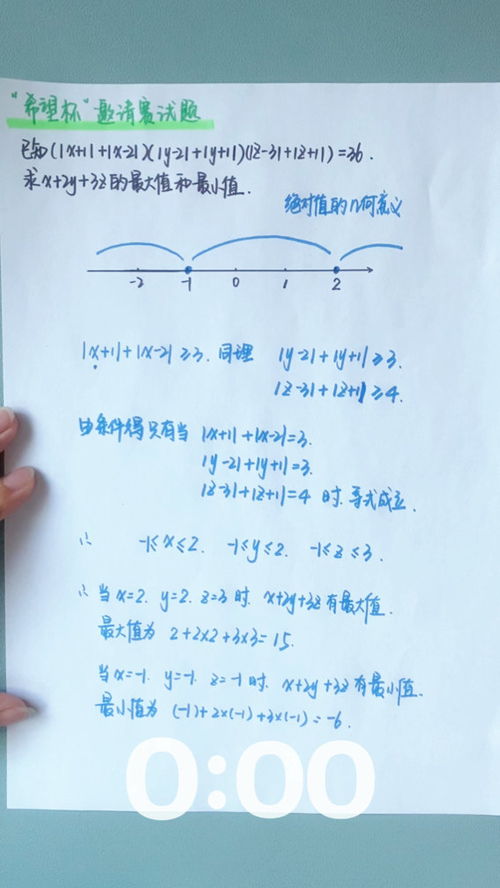 "希望杯"邀请赛试题
已知(|x+1|+|x-2|)(|y-2|+|y+1|)(|z-3|+|z+1|)=36.
求x+2y+3z的最大值和最小值.
绝对值的几何意义
-2 -1 0 1 2
|x+1|+|x-2|≥3. 同理 |y-2|+|y+1|≥3.
|z-3|+|z+1|≥4.
由条件得只有当 |x+1|+|x-2|=3.
|y-2|+|y+1|=3.
|z-3|+|z+1|=4 时. 等式成立.
∴ -1≤x≤2. -1≤y≤2. -1≤z≤3.
∴ 当x=2. y=2. z=3 时. x+2y+3z有最大值.
最大值为 2+2×2+3×3=15.
当x=-1. y=-1. z=-1时. x+2y+3z有最小值.
最小值为 (-1)+2×(-1)+3×(-1)=-6.
0:00